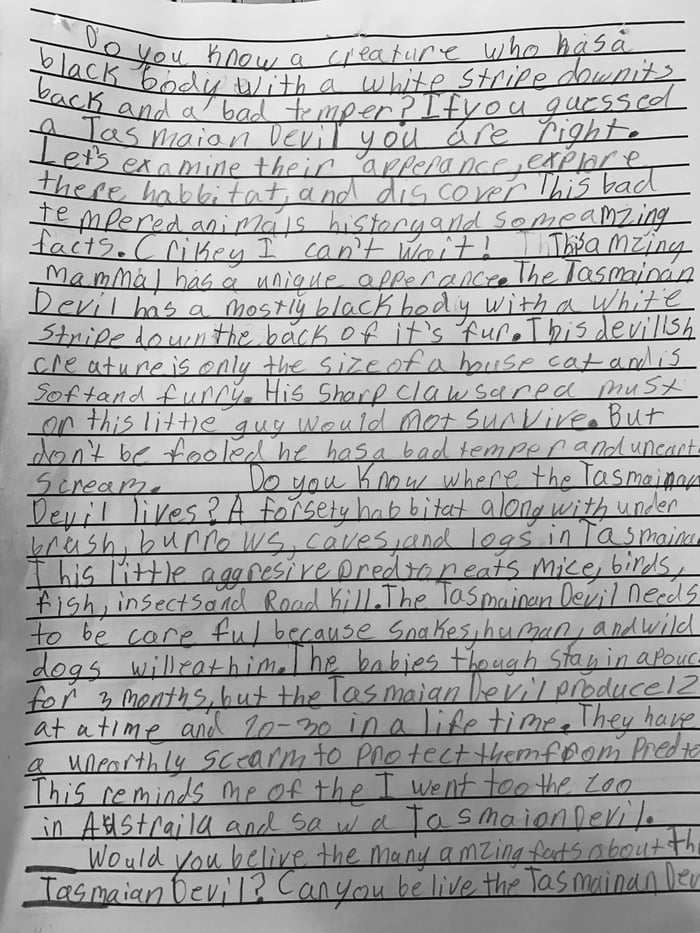 Do you know a creature who has a
black body with a white stripe down its
back and a bad temper? If you guessed
a Tasmaian Devil you are right.
Let's examine their apperance, explore
there habbitat, and discover This bad
tempered animals history and some amzing
facts. Crikey I can't wait! This amzing
mammal has a unique apperance. The Tasmainan
Devil has a mostly black body with a white
stripe down the back of it's fur. This devilish
creature is only the size of a house cat and is
soft and furry. His sharp claws are a must
or this little guy would not survive. But
don't be fooled he has a bad temper and uneart
scream. Do you know where the Tasmainan
Devil lives? A forsety habbitat along with under
brush, burrows, caves, and logs in Tasmaina
This little aggresive predtor eats mice, birds,
fish, insects and Road kill. The Tasmainan Devil needs
to be care ful because snakes, human, and wild
dogs will eat him. The babies though stay in a pouc
for 3 months, but the Tasmaian Devil produce 12
at a time and 20-30 in a life time. They have
a unearthly scearm to protect them from predto
This reminds me of the I went too the zoo
in Australia and saw a Tasmaian Devil.
Would you belive the many amzing fats about thi
Tasmaian Devil? Can you belive the Tasmainan Dev